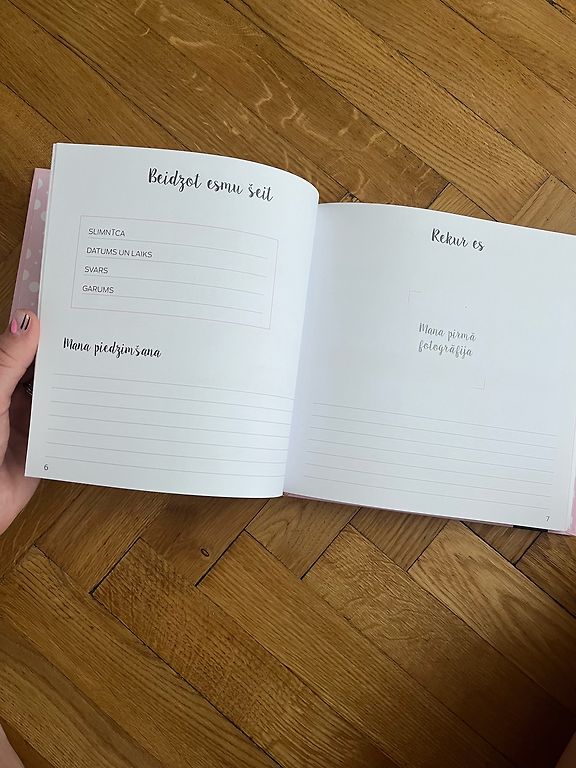 Beidzot esmu šeit
SLIMNĪCA
DATUMS UN LAIKS
SVARS
GARUMS
Mana piedzimšana
6
Rekur es
Mana pirmā
fotogrāfija
7